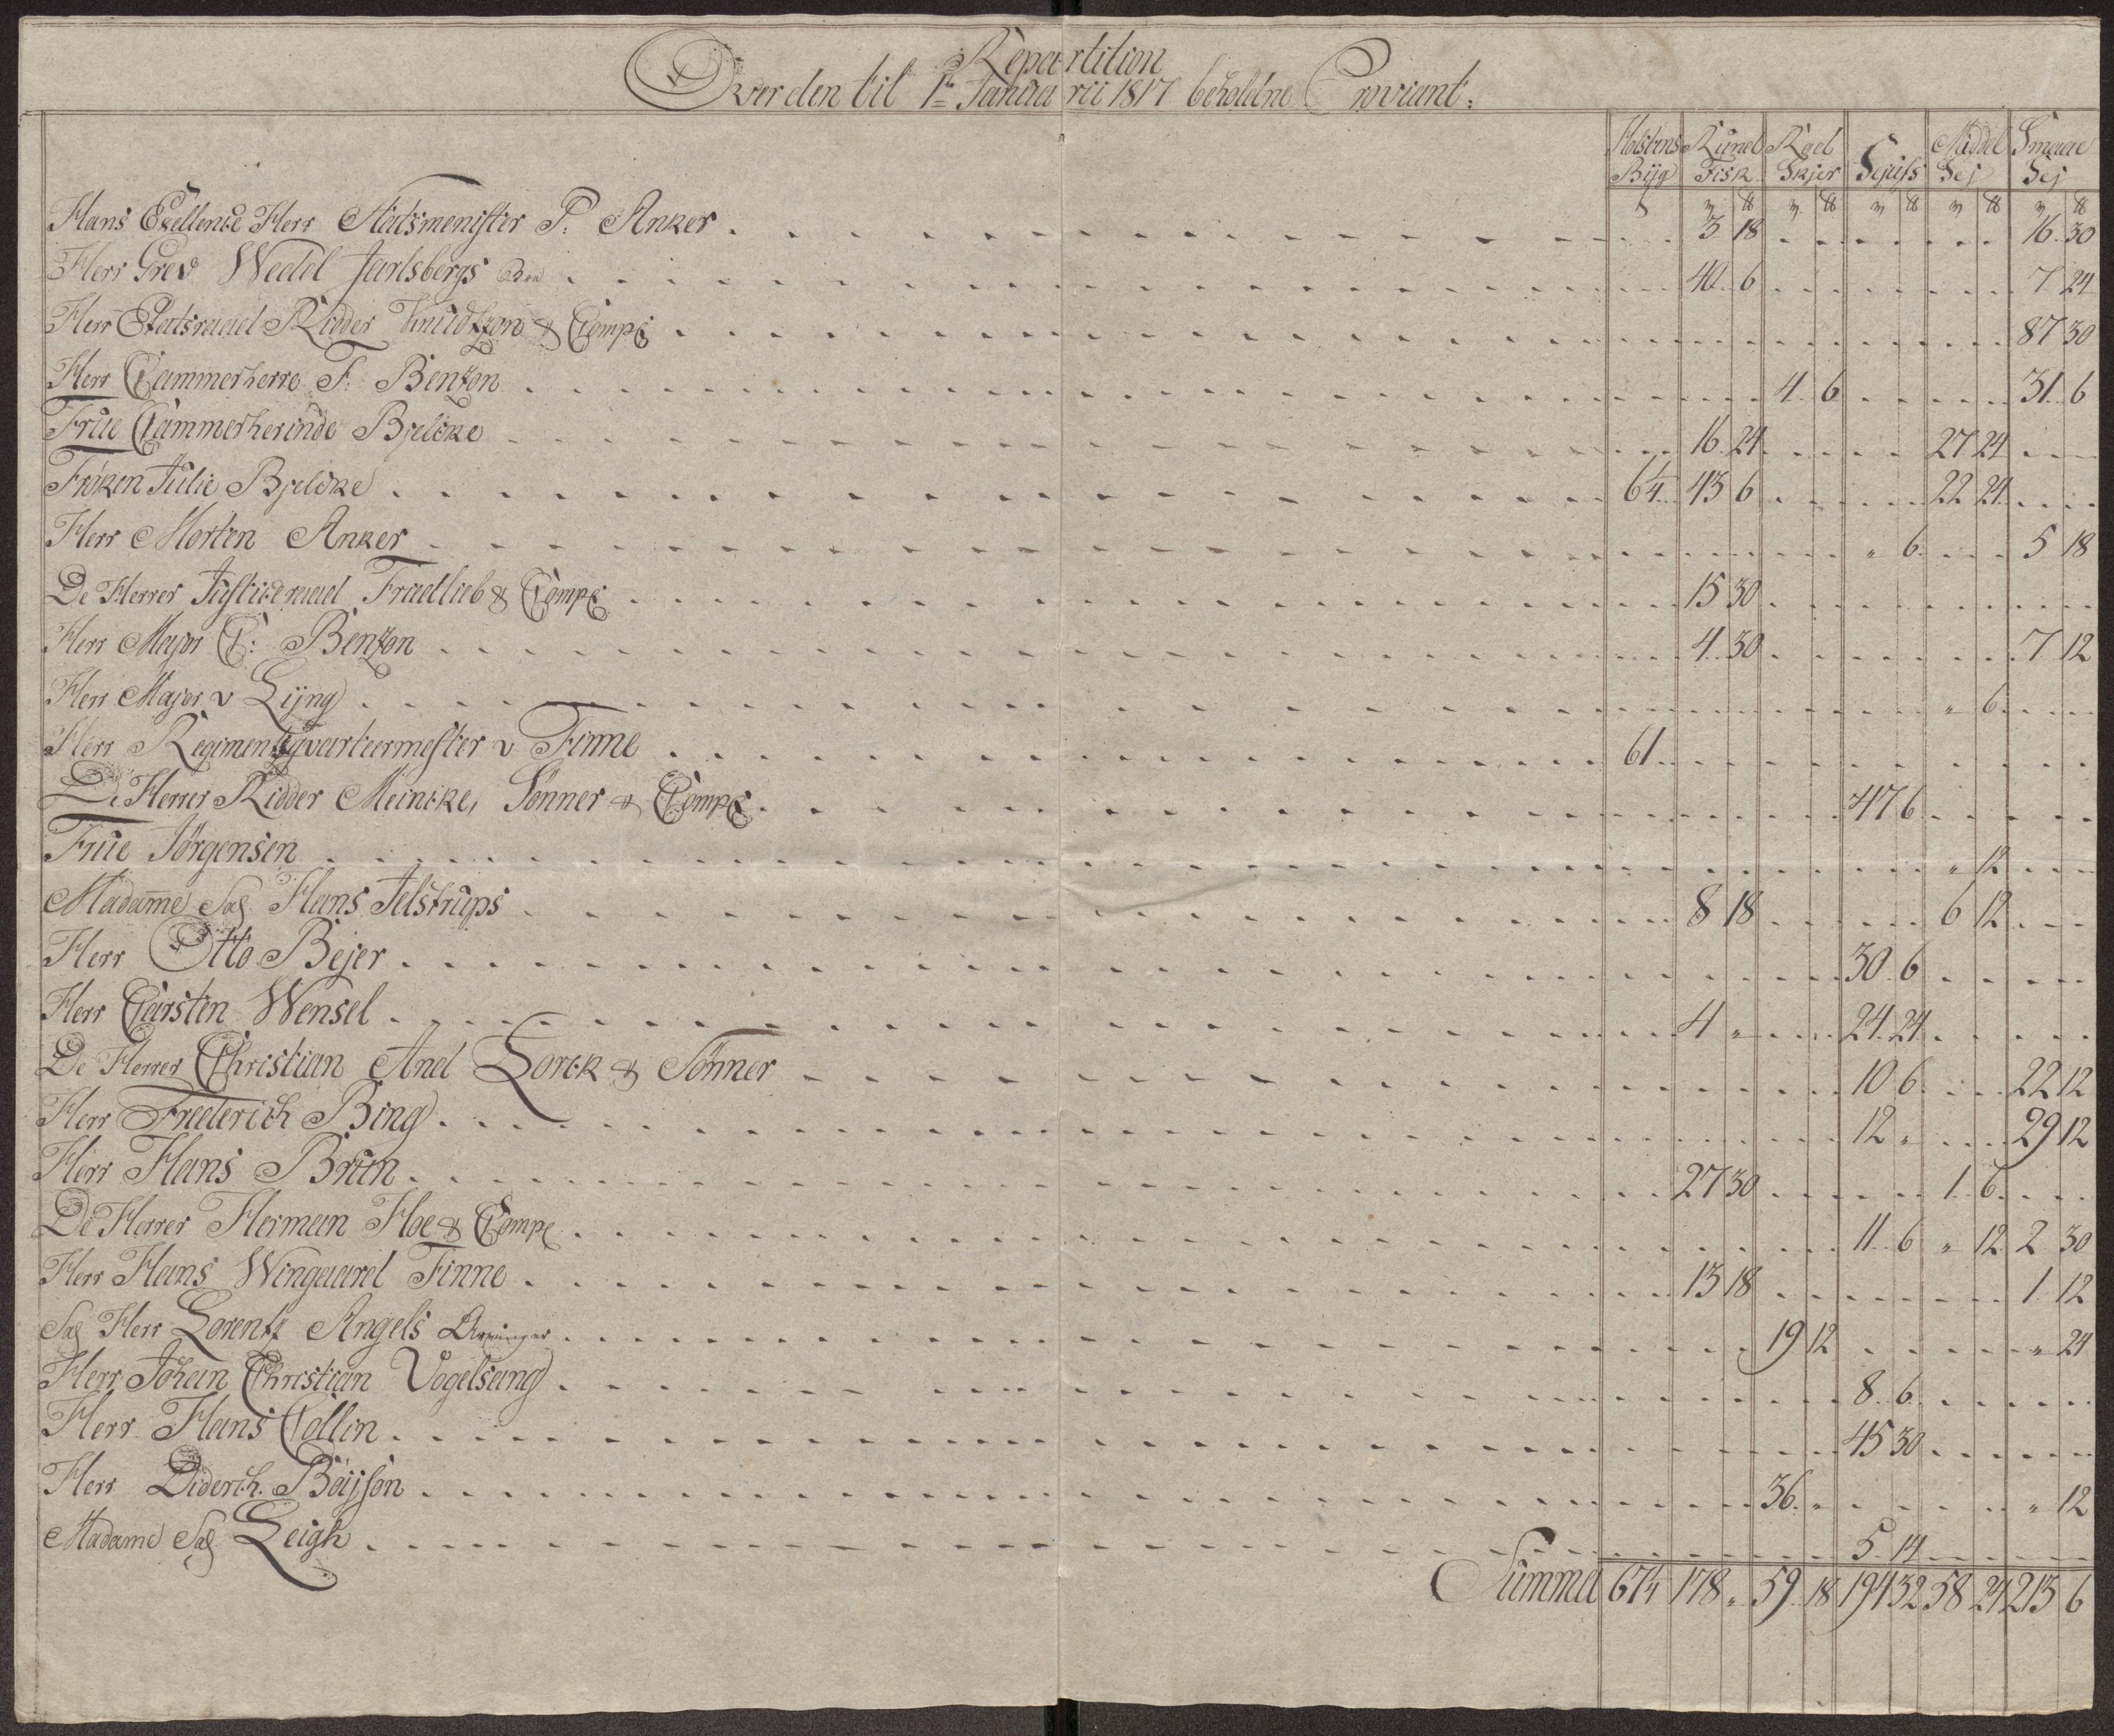 Repartition
Over den til 1te Januarii 1817 beholdne Proviant:
Holstens Byg | Rund Fisk | Rod Skjer | Sejufs | Middel Sej | Smaae Sej
Hans Exellentze Herr Statsmenister P: Anker . 3 18 . 16 30
Herr Grev Wedel Jarlsbergs . 40 6 . 7 24
Herr Etatsraad Ridder Knudtzon & Comp . 87 30
Herr Cammerherre F: Bentzon . 4 6 . 31 6
Frue Cammerherinde Bjelcke . 16 24 . 27 24
Frøken Julie Bjelcke . 6¼ 43 6 . 22 24
Herr Morten Anker . " 6 . 5 18
De Herrer Justitzraad Fradlieb & Comp . 15 30
Herr Major C: Bentzon . 4 30 . 7 12
Herr Major v Lyng . " 6
Herr Regimentsqvarteermester v Finne . 61
De Herrer Ridder Meincke, Sønner & Comp . 47 6
Frue Jørgensen . " 12
Madame Sal Hans Jelstrups . 8 18 . 6 12
Herr Otto Bejer . 30 6
Herr Carsten Wensel . 4 " . 24 24
De Herrer Christian And Lorck & Sønner . 10 6 . 22 12
Herr Frederich Bing . 12 " . 29 12
Herr Hans Brun . 27 30 . 1 6
De Herrer Herman Hoe & Comp . 11 6 " 12 2 30
Herr Hans Wingaard Finne . 13 18 . 1 12
Sal Herr Lorentz Angels Arvinger . 19 12 . " 24
Herr Johan Christian Vogelsang . 8 6
Herr Hans Collin . 45 30
Herr Diderich Böyson . 36 " . " 12
Madame Sal Leigh . 5 14
Summa 67¼ 178 " 59 18 194 32 58 24 213 6